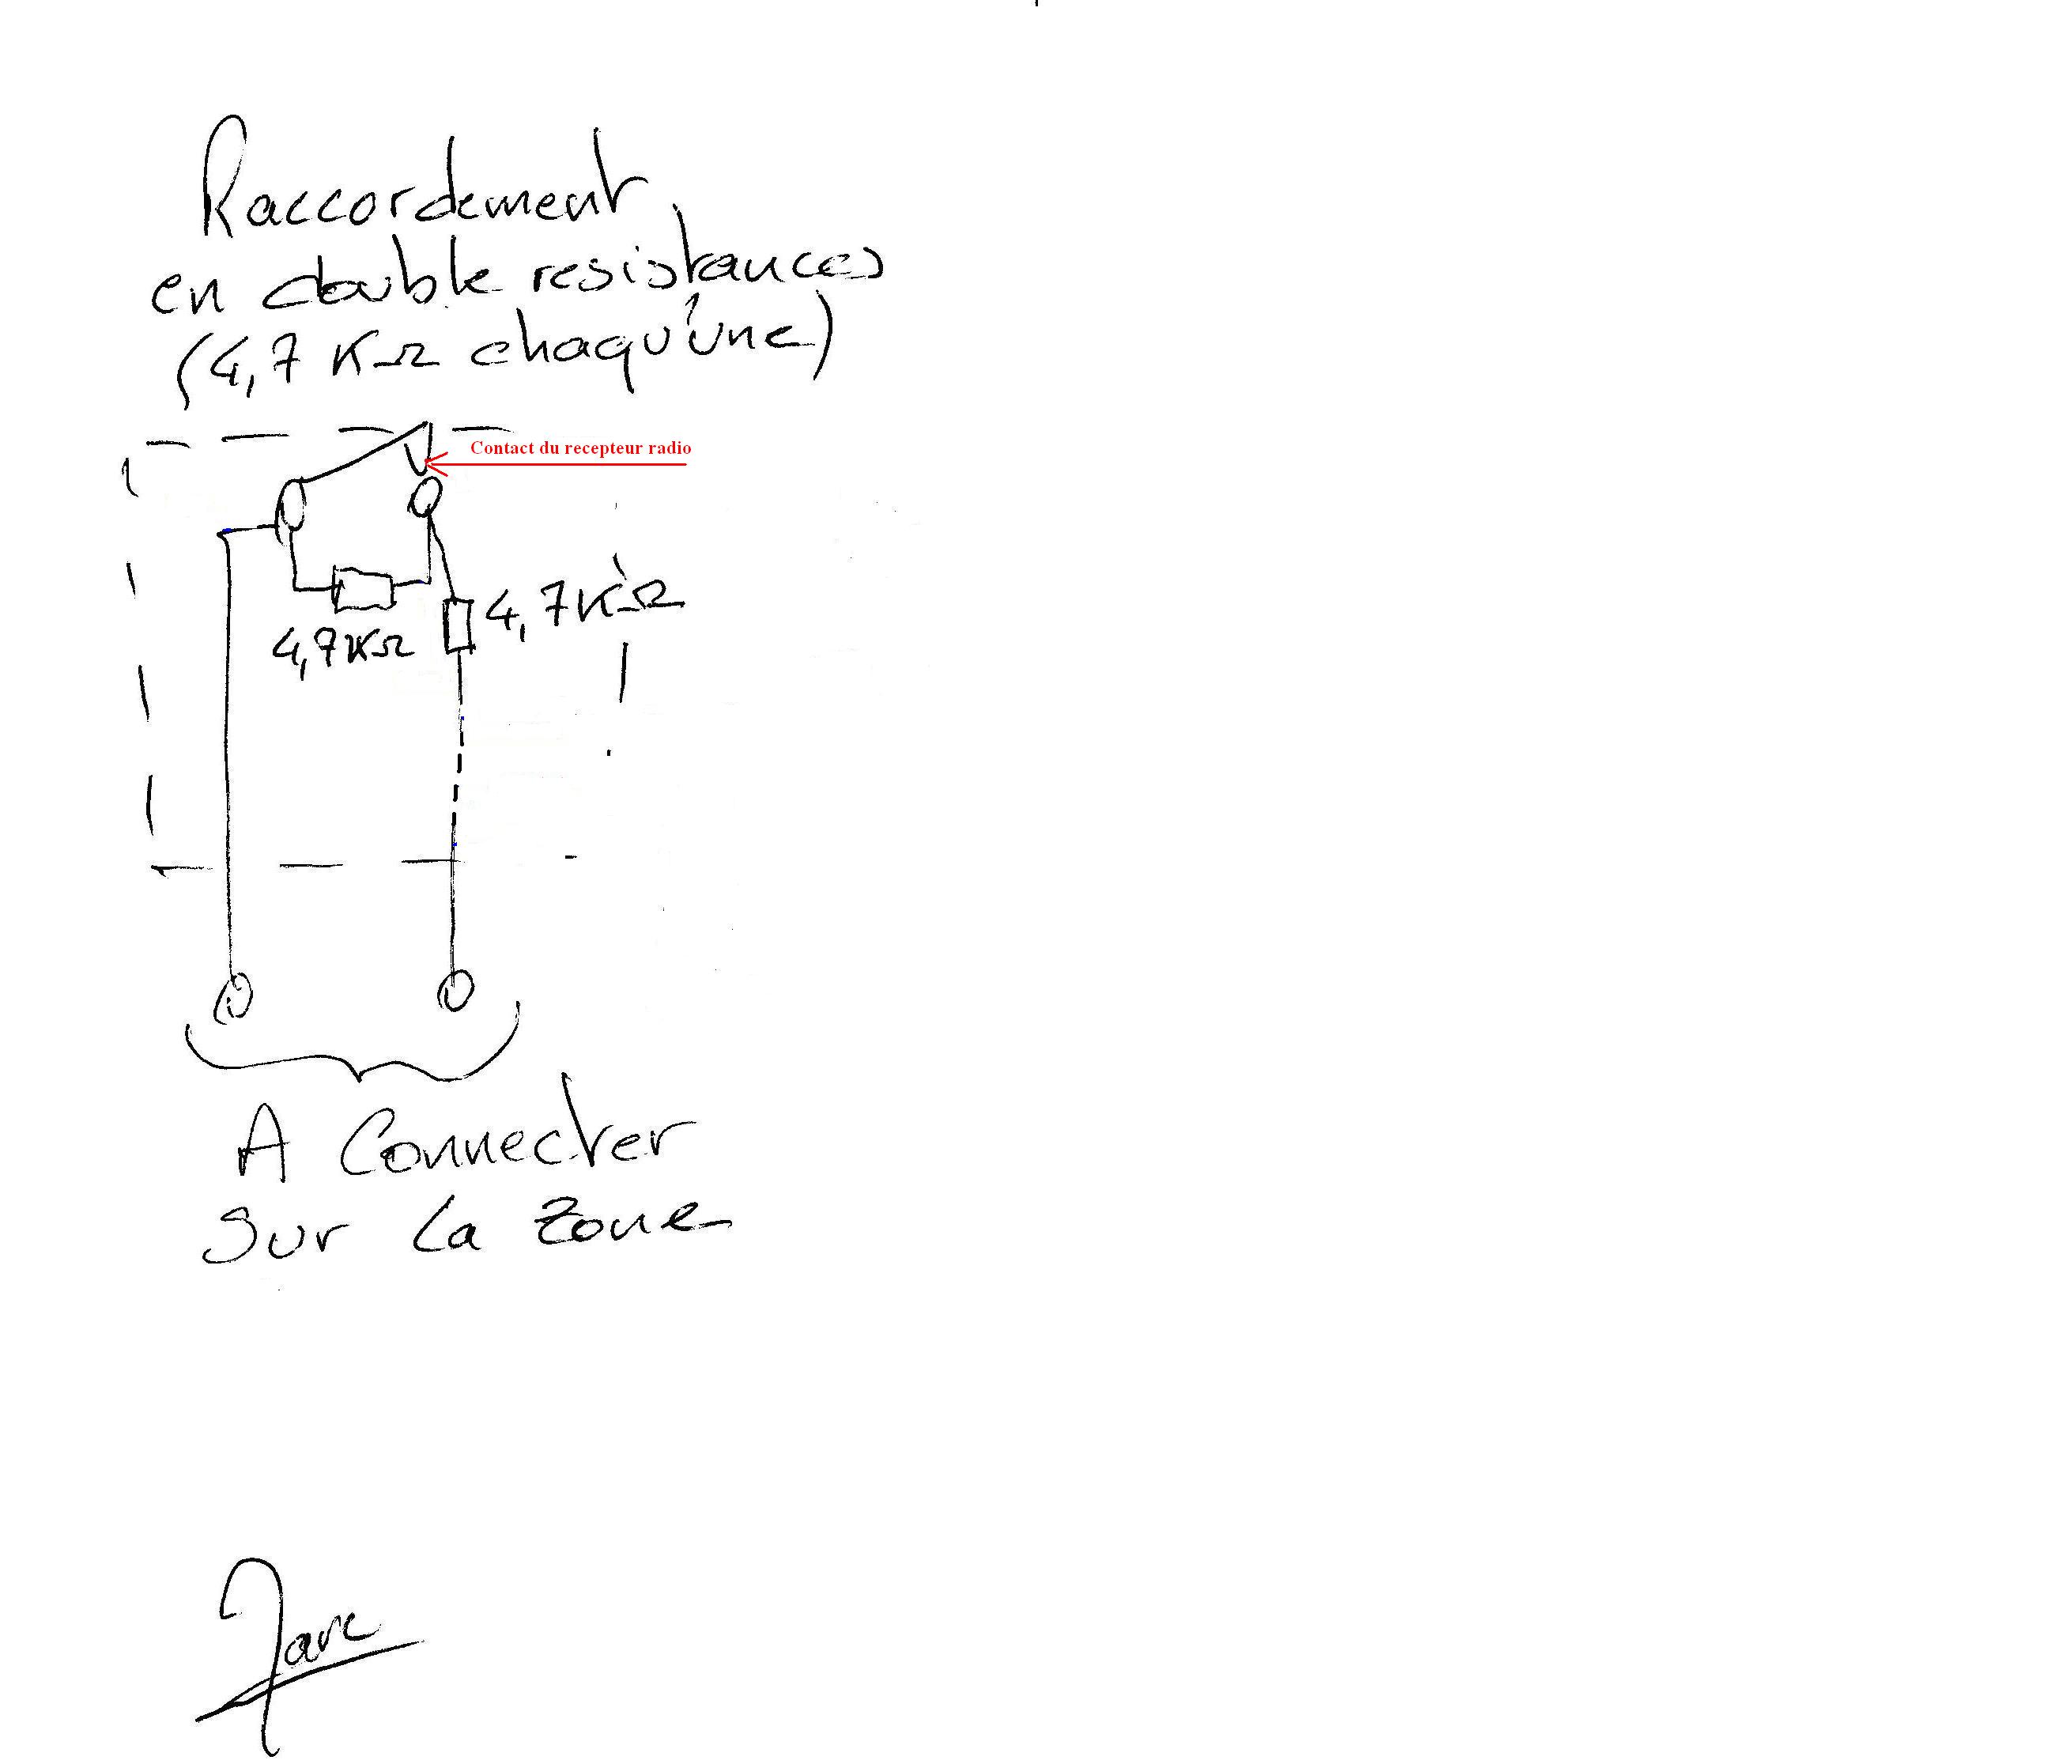 Raccordement
en double resistances
(4,7 KΩ chaqu'une)
Contact du recepteur radio
4,7KΩ
4,7KΩ
A Connecter
Sur la zone
Marc